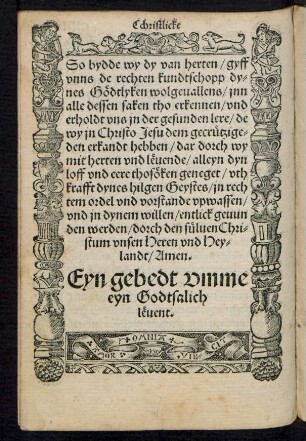 Cchristlicke
So bydde wy dy van herten/gyff
vnns de rechten kundtschopp dy-
nes Göͤdtlyken wolgeuallens/jnn
alle dessen saken tho erkennen/vnd
erholdt vns jn der gesunden lere/de
wy jn Christo Jesu dem gecrützige-
den erkandt hebben/dar dorch wy
mit herten vnd leͤuende/alleyn dyn
loff vnd eere thosoͤken geneget/vth
krafft dynes hilgen Geystes/jn rech
tem ordel vnd vorstande vpwassen/
vnd jn dynem willen/entlick geuun
den werden/dorch den süluen Chri-
stum vnsen Heren vnd Hey-
landt/Amen.
Eyn gebedt vmme
eyn Godtsalich
leͤuent.
AMOR OMNIA VIN CIT